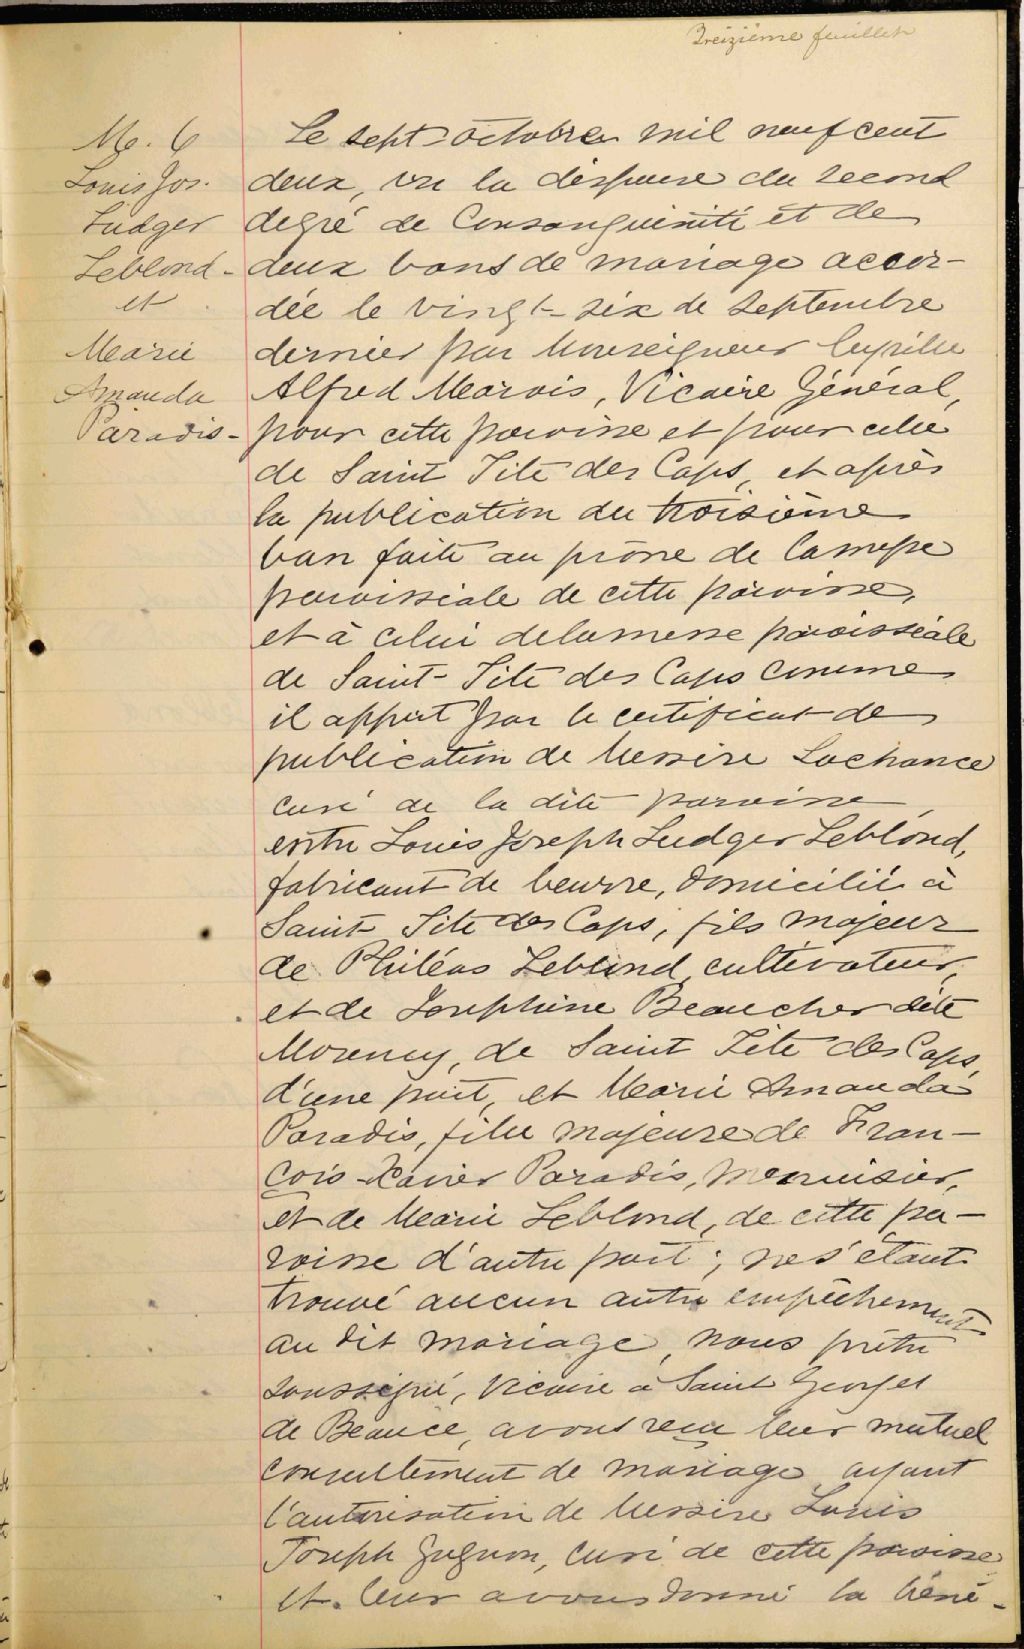 Treizième feuillet
M. 6
Louis Jos.
Ludger
Leblond -
et
Marie
Amanda
Paradis -
Le sept octobre mil neuf cent
deux, vu la dispense du second
degré de Consanguinité et de
deux bans de mariage accor-
dée le vingt-six de Septembre
dernier par Monseigneur Cyrille
Alfred Marois, Vicaire Général,
pour cette paroisse et pour celle
de Saint Tite des Caps, et après
la publication du troisième
ban faite au prône de la messe
paroissiale de cette paroisse,
et à celui de la messe paroissiale
de Saint-Tite des Caps comme
il appert par le certificat de
publication de Messire Lachance
curé de la dite paroisse,
entre Louis Joseph Ludger Leblond,
fabricant de beurre, domicilié à
Saint Tite des Caps, fils majeur
de Philéas Leblond, cultivateur,
et de Josephine Beaucher dite
Morency, de Saint Tite des Caps,
d'une part, et Marie Amanda
Paradis, fille majeure de Fran-
çois-Xavier Paradis, Menuisier,
et de Marie Leblond, de cette pa-
roisse d'autre part; ne s'étant
trouvé aucun autre empêchement
au dit mariage, nous prêtre
soussigné, Vicaire à Saint Georges
de Beauce, avons reçu leur mutuel
consentement de mariage ayant
l'autorisation de Messire Louis
Joseph Gagnon, curé de cette paroisse
et leur avons donné la béné-